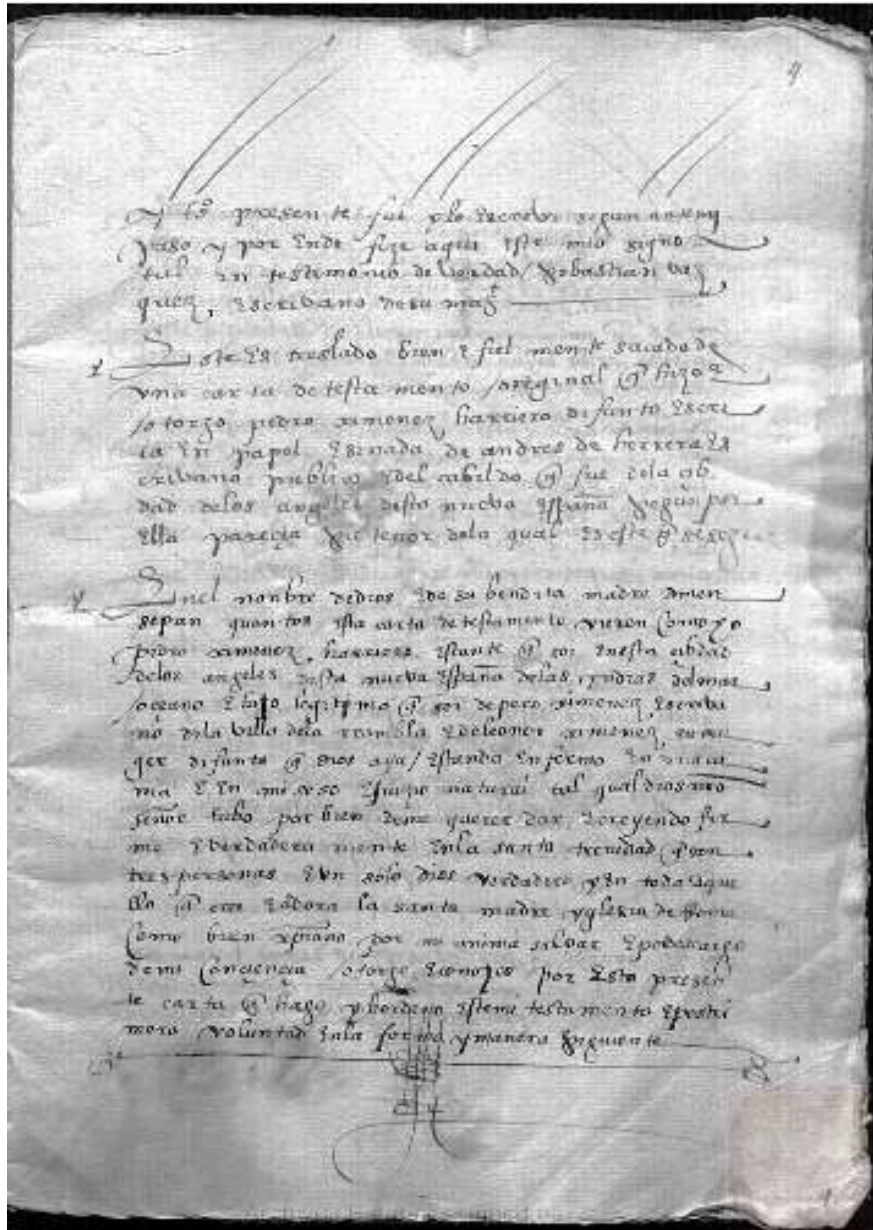 4
presente fui a lo escrevir segun ante my
paso y por ende fize aqui este mio signo
tal en testimonio de verdad / sebastian vaz
quez, escribano de su mag t
Este es treslado bien e fiel mente sacado de
una carta de testamento original q hizo e
otorgo pedro ximenez harriero difunto escri
ta en papel de andres de herrera es
crivano publico e del cabildo q fue dela çib
dad delos angeles desta nueva españa segun por
ella pareçia su tenor dela qual es este q se sigue
En el nonbre de dios e de su bendita madre amen
sepan quantos esta carta de testamento vieren como yo
pedro ximenez, harriero estante q soy en esta çibdad
delos angeles desta nueva españa delas yndias del mar
oçeano e hijo legitymo q soy de pero ximenez, escriva
no dela villa dela rambla e de leonor ximenez, su mu
ger difunta q dios aya / estando enfermo
e en mi seso e juizio natural tal qual dios nro
señor tubo por bien de me querer dar, e creyendo fir
me e verdadera mente en la santa trenidad q son
tres personas e un solo dios verdadero y en todo aque
llo q cree e adora la santa madre yglesia de Roma
como bien xpiano por mi anima salvar e por descargo
de mi conçençia otorgo e conozco por esta presen
te carta q hago y hordeno este mi testamento e postri
mera voluntad en la forma y manera siguiente